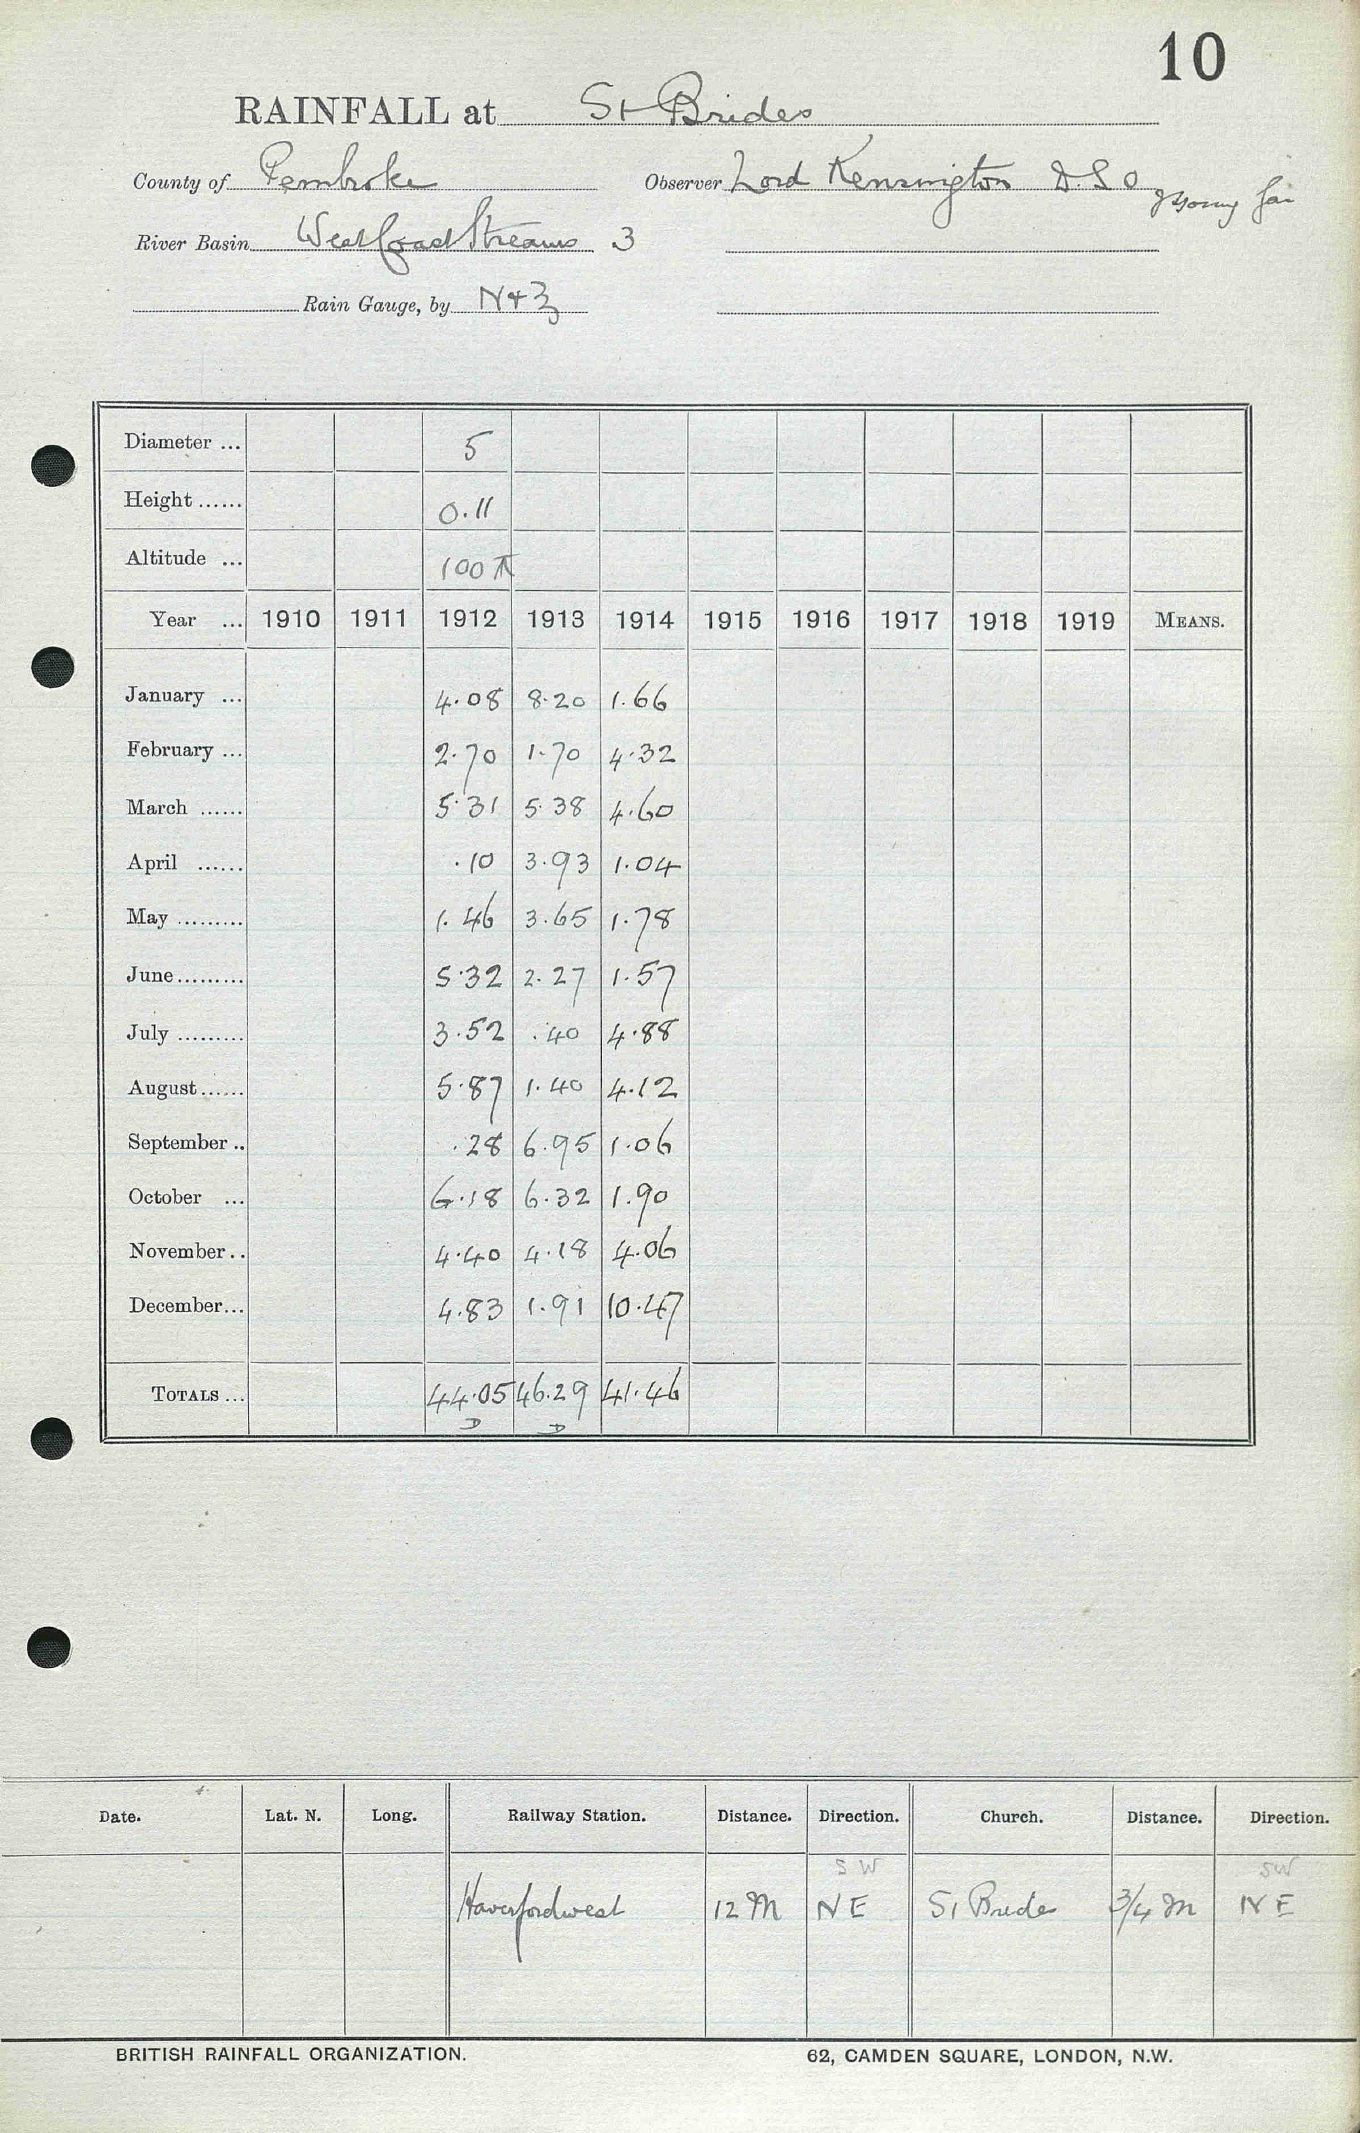 10
RAINFALL at St Brides
County of Pembroke Observer Lord Kensington D.S.O
River Basin West Coast Streams 3
Rain Gauge, by N & Z
Diameter ... 5
Height ...... 0.11
Altitude ... 100 ft
Year ... 1910 1911 1912 1913 1914 1915 1916 1917 1918 1919 MEANS.
January ... 4.08 8.20 1.66
February ... 2.70 1.70 4.32
March ...... 5.31 5.38 4.60
April ...... .10 3.93 1.04
May ......... 1.46 3.65 1.78
June ......... 5.32 2.27 1.57
July ......... 3.52 .40 4.88
August ...... 5.87 1.40 4.12
September .. .28 6.95 1.06
October ... 6.18 6.32 1.90
November .. 4.40 4.18 4.06
December ... 4.83 1.91 10.47
TOTALS ... 44.05 46.29 41.46
D D
Date. Lat. N. Long. Railway Station. Distance. Direction. Church. Distance. Direction.
SW SW
Haverfordwest 12 M NE St Brides 3/4 M NE
BRITISH RAINFALL ORGANIZATION. 62, CAMDEN SQUARE, LONDON, N.W.